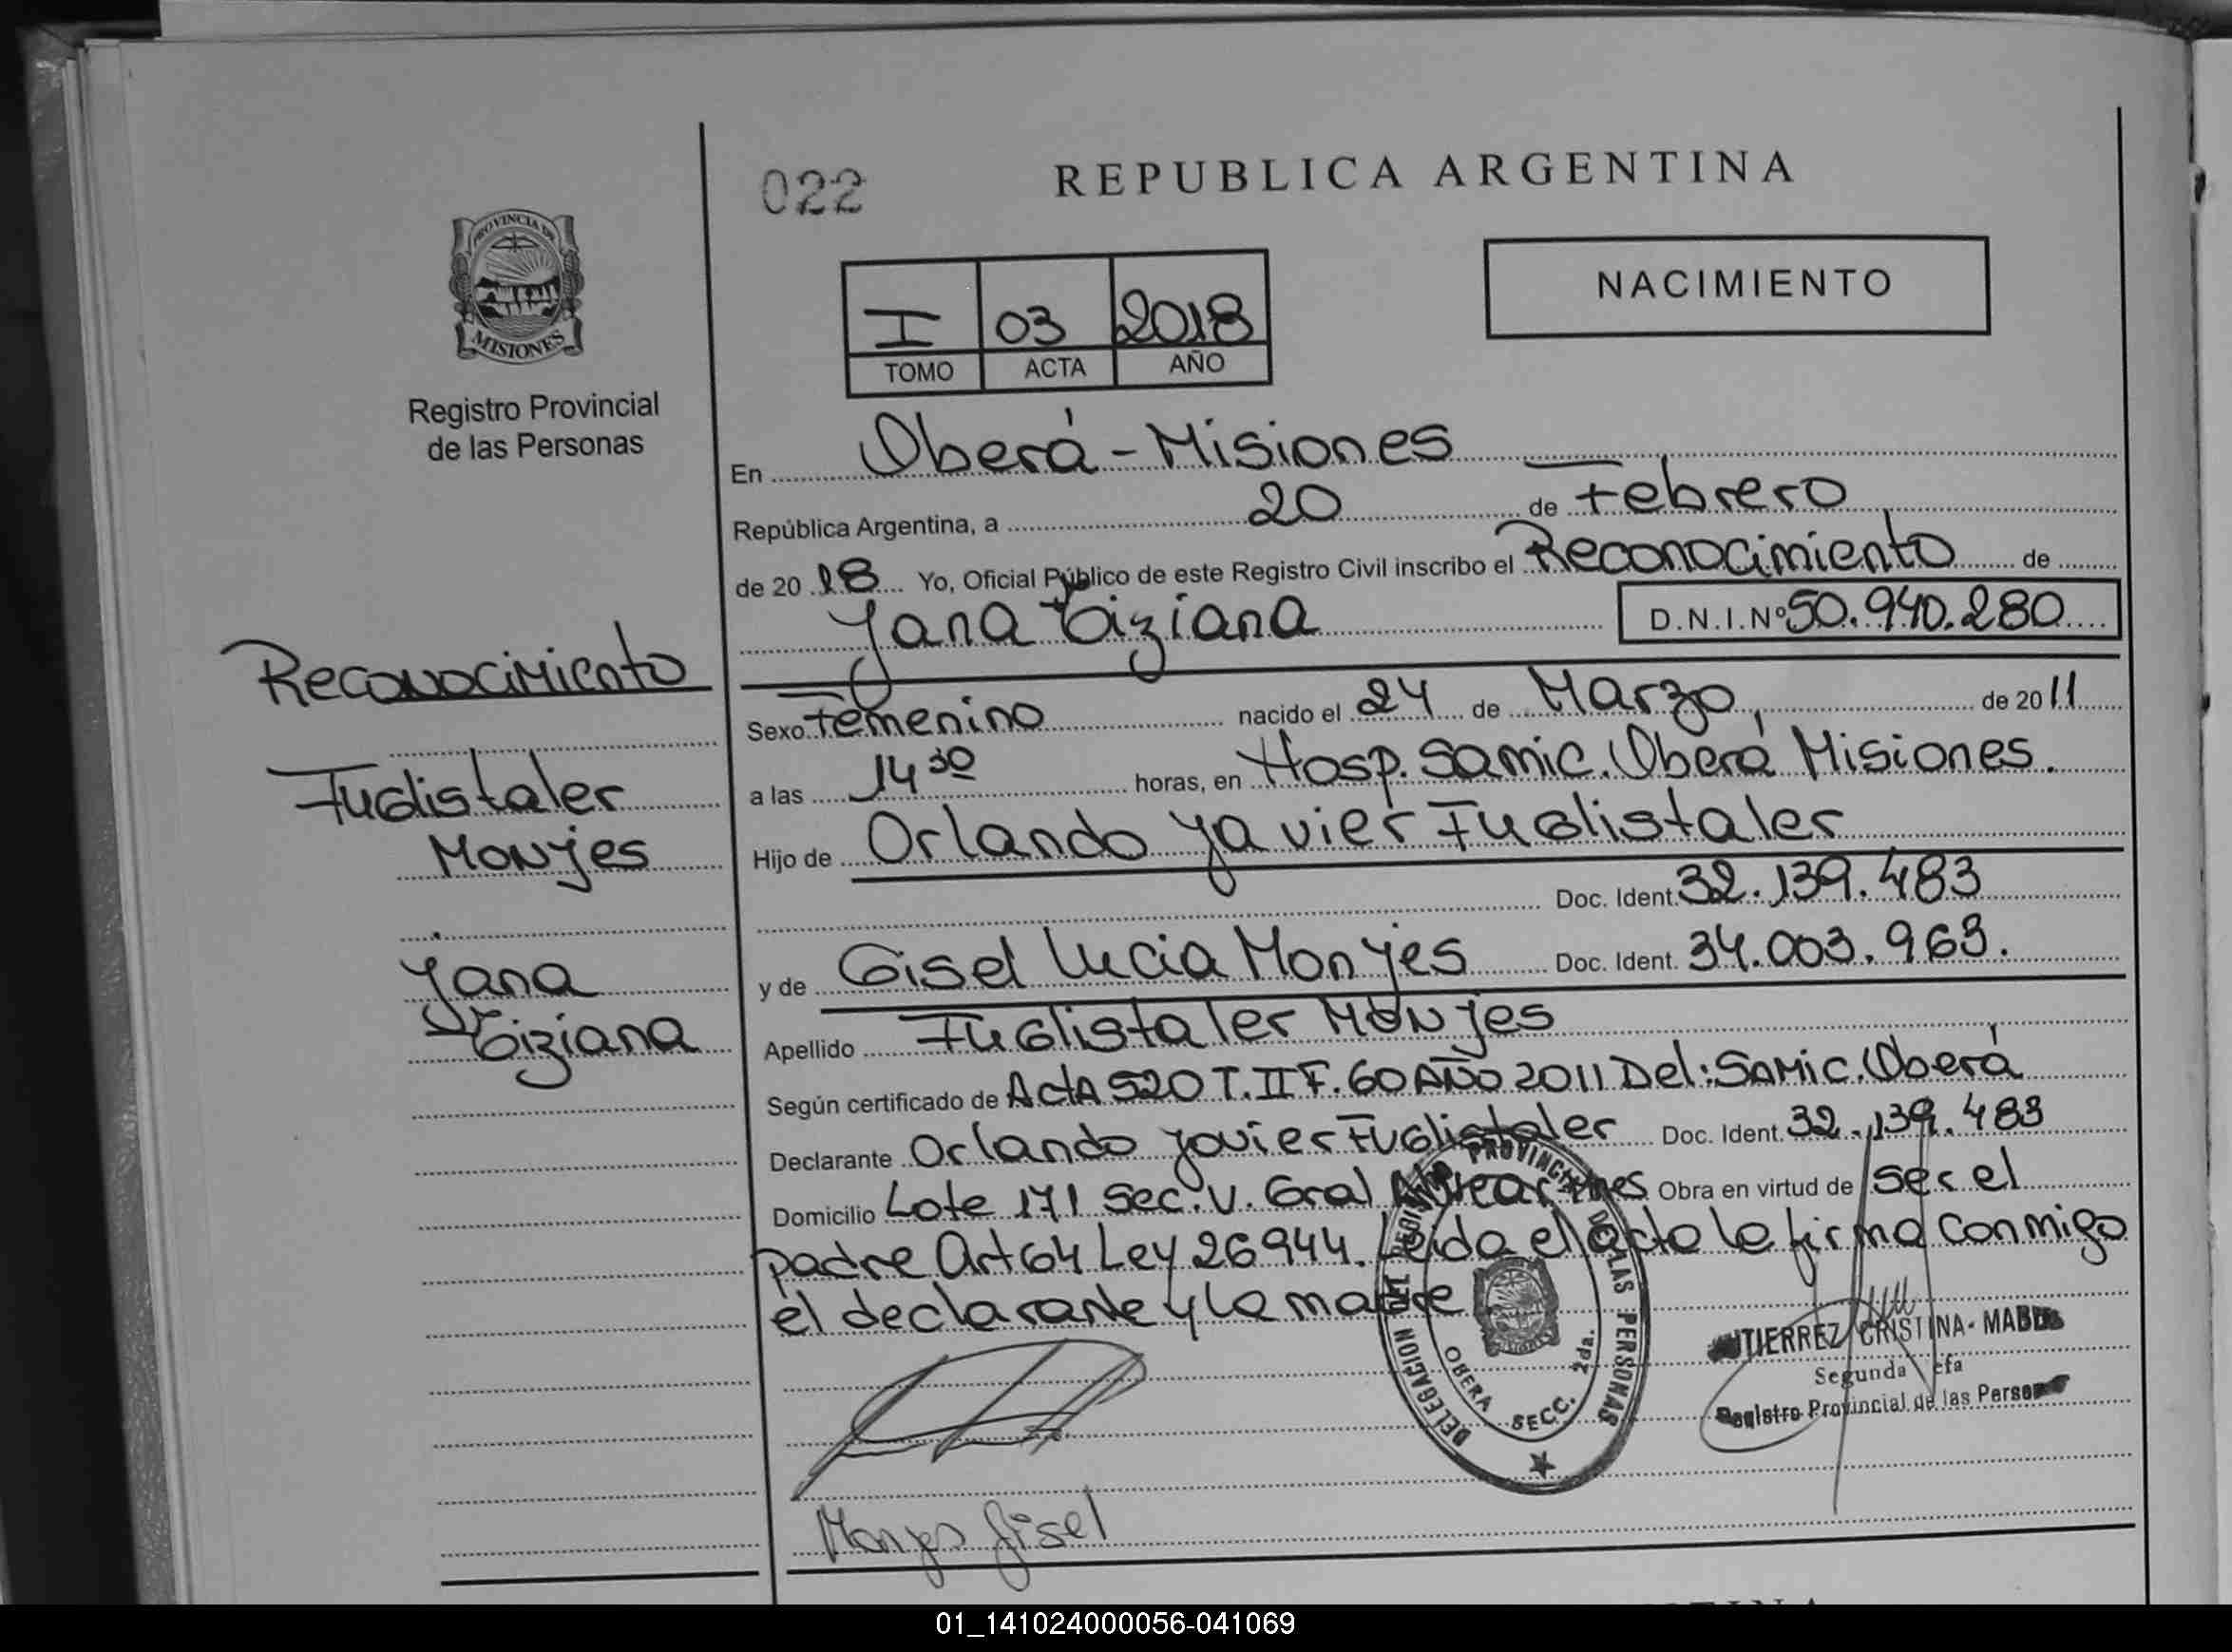 022
REPUBLICA ARGENTINA
PROVINCIA DE
MISIONES
Registro Provincial
de las Personas
I 03 2018
TOMO ACTA AÑO
NACIMIENTO
En Oberá - Misiones
República Argentina, a 20 de Febrero
de 20 18 Yo, Oficial Público de este Registro Civil inscribo el Reconocimiento de
Yana Tiziana D.N.I.Nº 50.940.280
Sexo Femenino nacido el 24 de Marzo, de 20 11
a las 14 30 horas, en Hosp. Samic. Oberá Misiones.
Hijo de Orlando Yavier Fuglistaler
Doc. Ident. 32.139.483
y de Gisel Lucia Monyes Doc. Ident. 34.003.963.
Apellido Fuglistaler Monjes
Según certificado de Acta 520 T. II F. 60 Año 2011 Del: Samic. Oberá
Declarante Orlando Yavier Fuglistaler Doc. Ident. 32.139.483
Domicilio Lote 171 Sec. V. Gral Obra en virtud de ser el
padre Art 64 Ley 26944. Leida el acta la firma conmigo
el declarante y la madre
Reconocimiento
Fuglistaler
Monjes
Yana
Tiziana
DELEGACION REGISTRO PROVINCIAL DE LAS PERSONAS
OBERA SECC. 2da.
GUTIERREZ CRISTINA MABEL
Segunda Jefa
Registro Provincial de las Personas
Monyes Gisel
01_141024000056-041069